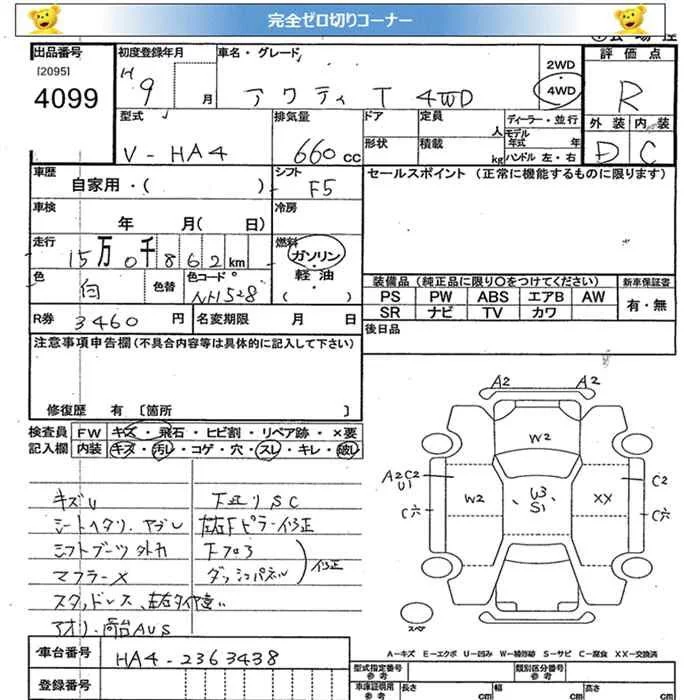 完全ゼロ切りコーナー
出品番号 初度登録年月 車名・グレード 2WD 評価点
[2095] H
4099 9 月 アクティ T 4WD ・4WD R
型式 排気量 ドア 定員 ディーラー・並行 外装 内装
人 モデル年式 年
V-HA4 660cc 形状 積載 kg ハンドル 左・右 D C
車歴 シフト セールスポイント (正常に機能するものに限ります)
自家用・( ) F5
車検 冷房
年 月( 日)
走行 燃料
15万0千862km ガソリン・
色 色替 色コード 軽油 装備品 (純正品に限り○をつけてください) 新車保証書
白 NH528 ( ) PS PW ABS エアB AW 有・無
R券 3460円 名変期限 月 日 SR ナビ TV カワ
注意事項申告欄 (不具合内容等は具体的に記入して下さい) 後日品
修復歴 有 [箇所 ]
検査員 FW キズ・飛石・ヒビ割・リペア跡・×要
記入欄 内装 キズ・汚レ・コゲ・穴・スレ・キレ・破レ
A2 A2
W2
A2C2 C2
U1
W2 W3 XX
S1
C穴 C穴
スペア
キズU 下廻りSC
シートヘタリ、ヤブレ 左右Fピラー修正
シフトブーツ外れ Fフロア
マフラーX ダッシュパネル 修正
スタッドレス、左右タイヤ違い
アオリ・荷台AUS
A-キズ E-エクボ U-凹み W-補修跡 S-サビ C-腐食 XX-交換済
車台番号 HA4-2363438 型式指定番号 参考 類別区分番号 参考
登録番号 車庫証明用 参考 長さ cm 幅 cm 高さ cm